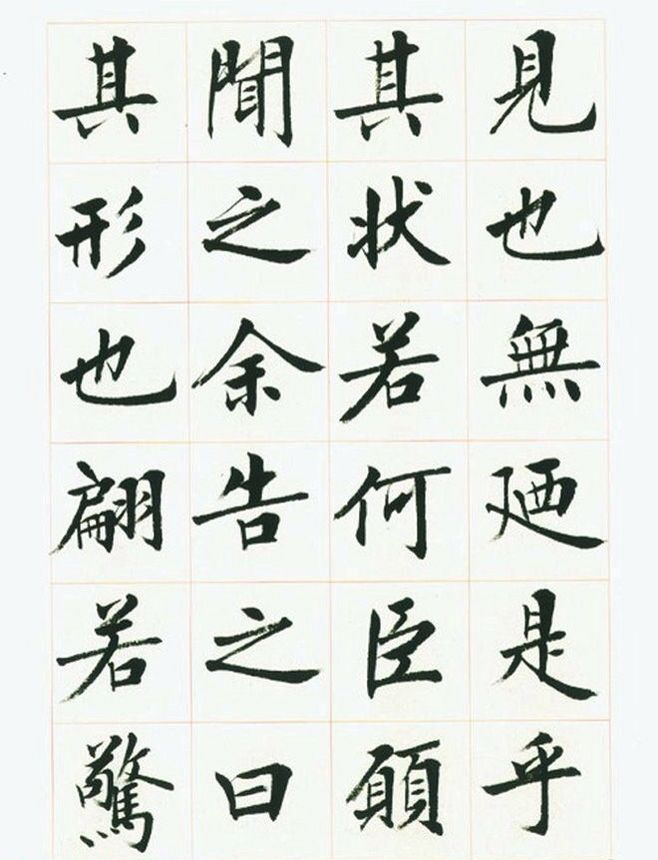 見也無廼是乎
其狀若何臣願
聞之余告之曰
其形也翩若驚